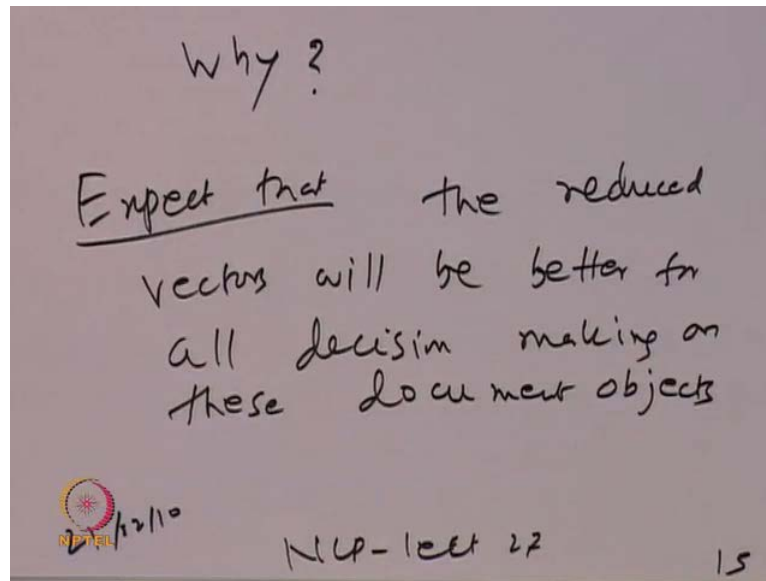 Why ?
Expect that the reduced
vectors will be better for
all decision making on
these document objects
NPTEL /12/10
NLP-lect 27
15